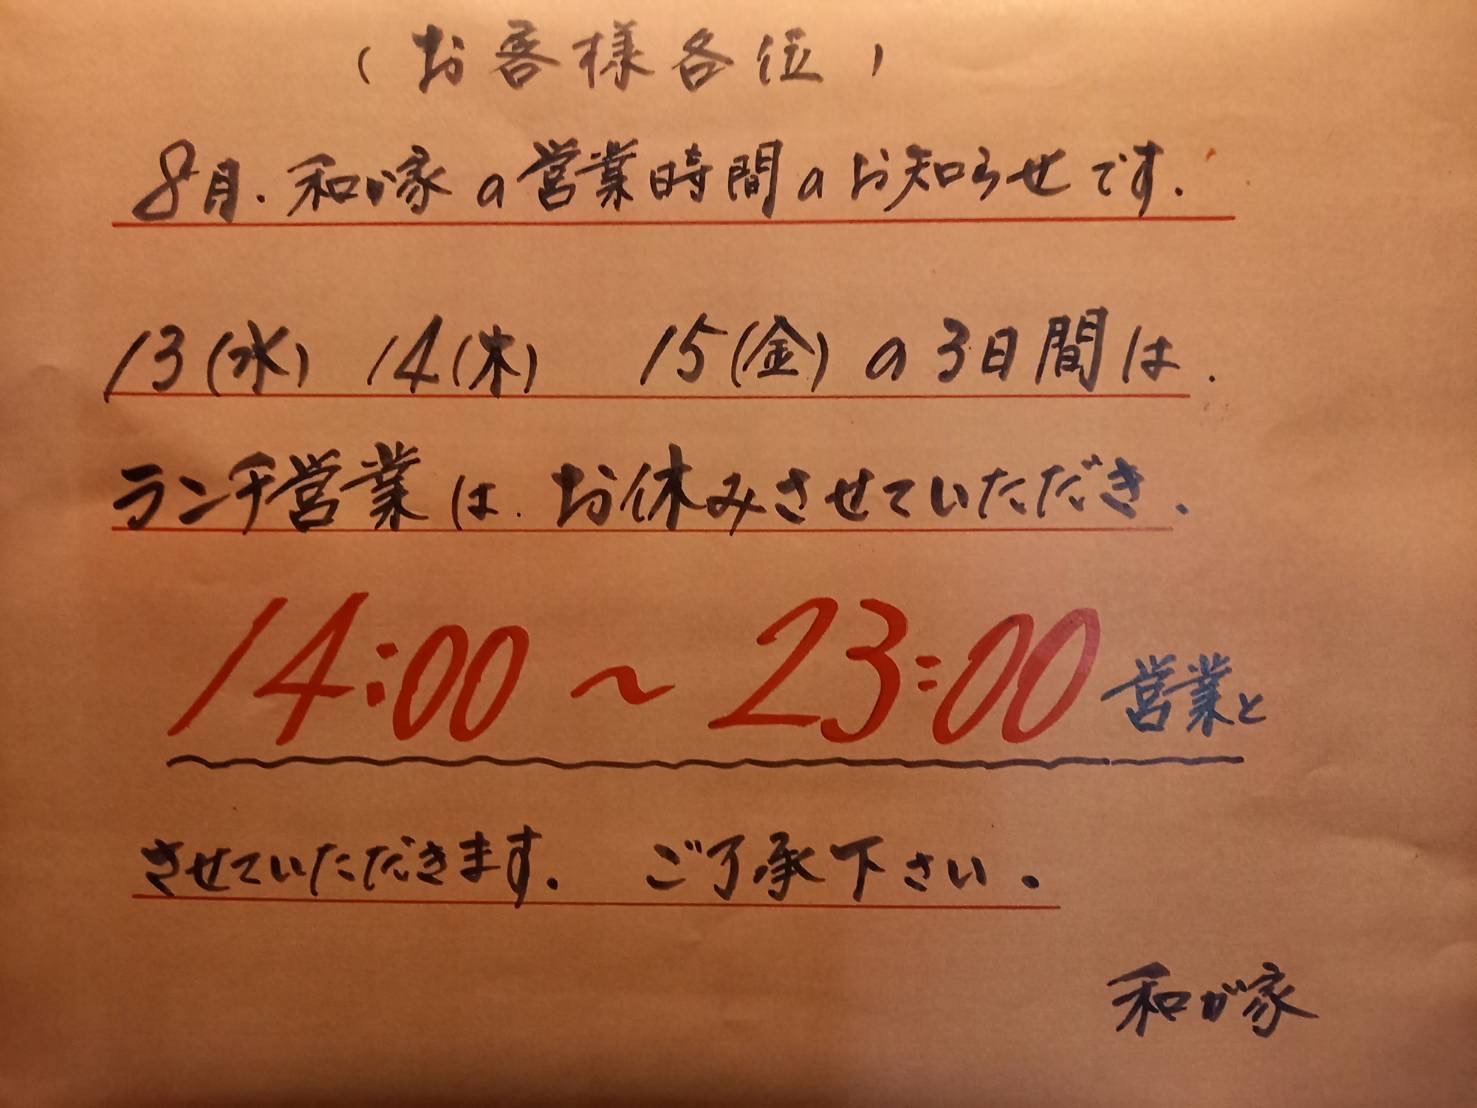 (お客様各位)
8月.和が家の営業時間のお知らせです.
13(水) 14(木) 15(金)の3日間は.
ランチ営業は.お休みさせていただき.
14:00~23:00営業と
させていただきます. ご了承下さい.
和が家